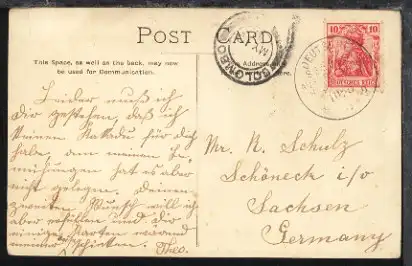 POST CARD
This Space, as well as the back, may now
be used for Communication.
Address
COLOMBO
MY
10 10
DEUTSCHES REICH
Leider muß ich
dir gestehen, daß ich
keinen Kakadu für dich
habe, an meinen Be-
mühungen hat es aber
nicht gelegen. Deinen
zweiten Wunsch will ich
aber erfüllen und dir
einige Karten
schicken. Theo.
Mr. N. Schulz
Schöneck i/v
Sachsen
Germany